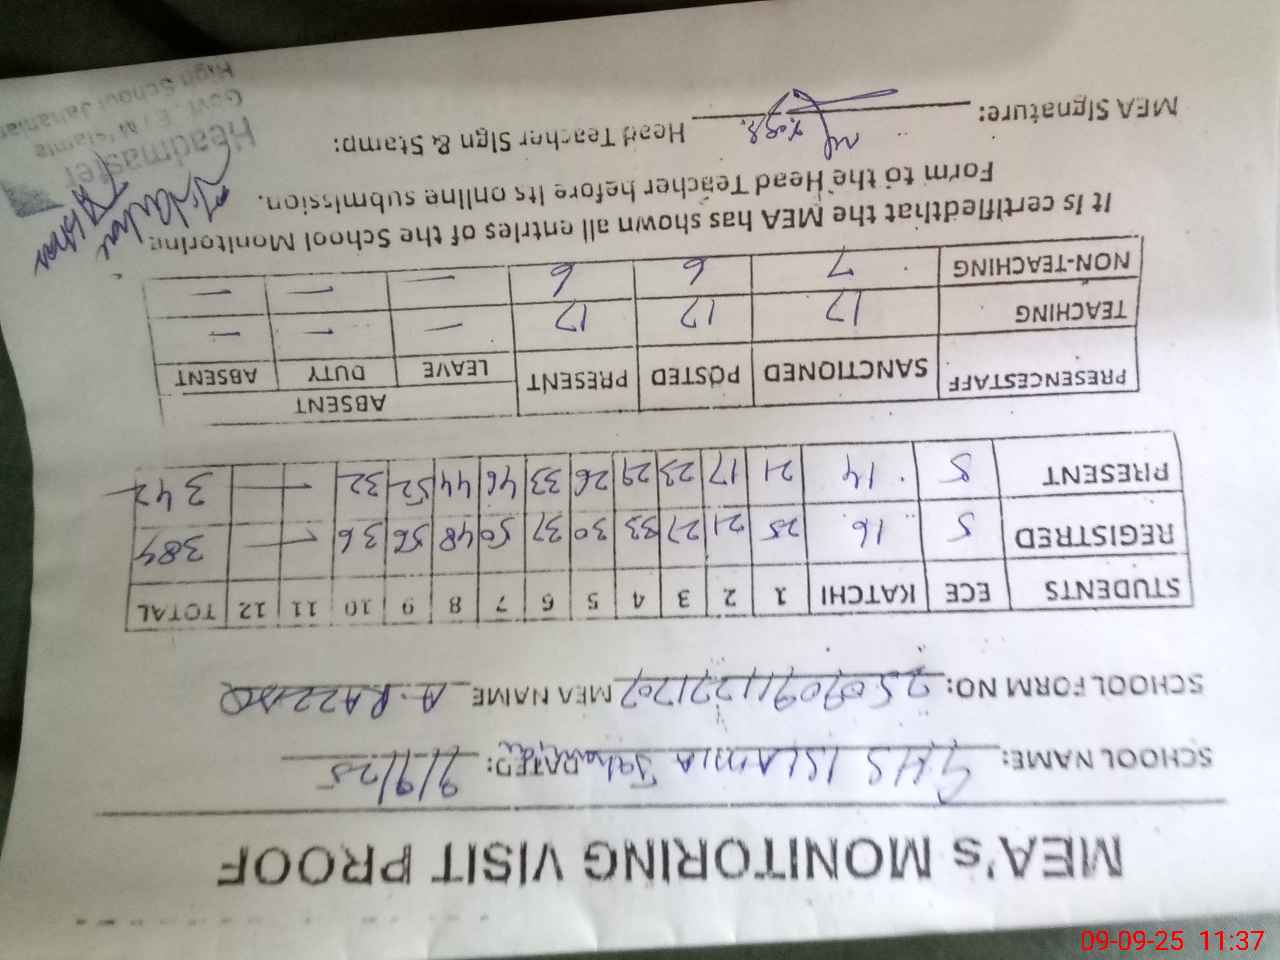 MEA's MONITORING VISIT PROOF
SCHOOL NAME: GHS ISLAMIA DATED: 9/9/25
SCHOOL FORM NO: MEA NAME A. RAZZAQ
STUDENTS ECE KATCHI 1 2 3 4 5 6 7 8 9 10 11 12 TOTAL
REGISTRED 5 16 25 21 27 33 30 37 50 48 56 36 — — 384
PRESENT 5 14 21 17 23 29 26 33 46 44 52 32 — — 342
PRESENCESTAFF SANCTIONED POSTED PRESENT ABSENT
LEAVE DUTY ABSENT
TEACHING 17 17 17 — — —
NON-TEACHING 7 6 6 — — —
It is certifiedthat the MEA has shown all entries of the School Monitoring
Form to the Head Teacher before its online submission.
MEA Signature: Head Teacher Sign & Stamp:
Headmaster
Govt. Islamia
High School Jahanian
09-09-25 11:37